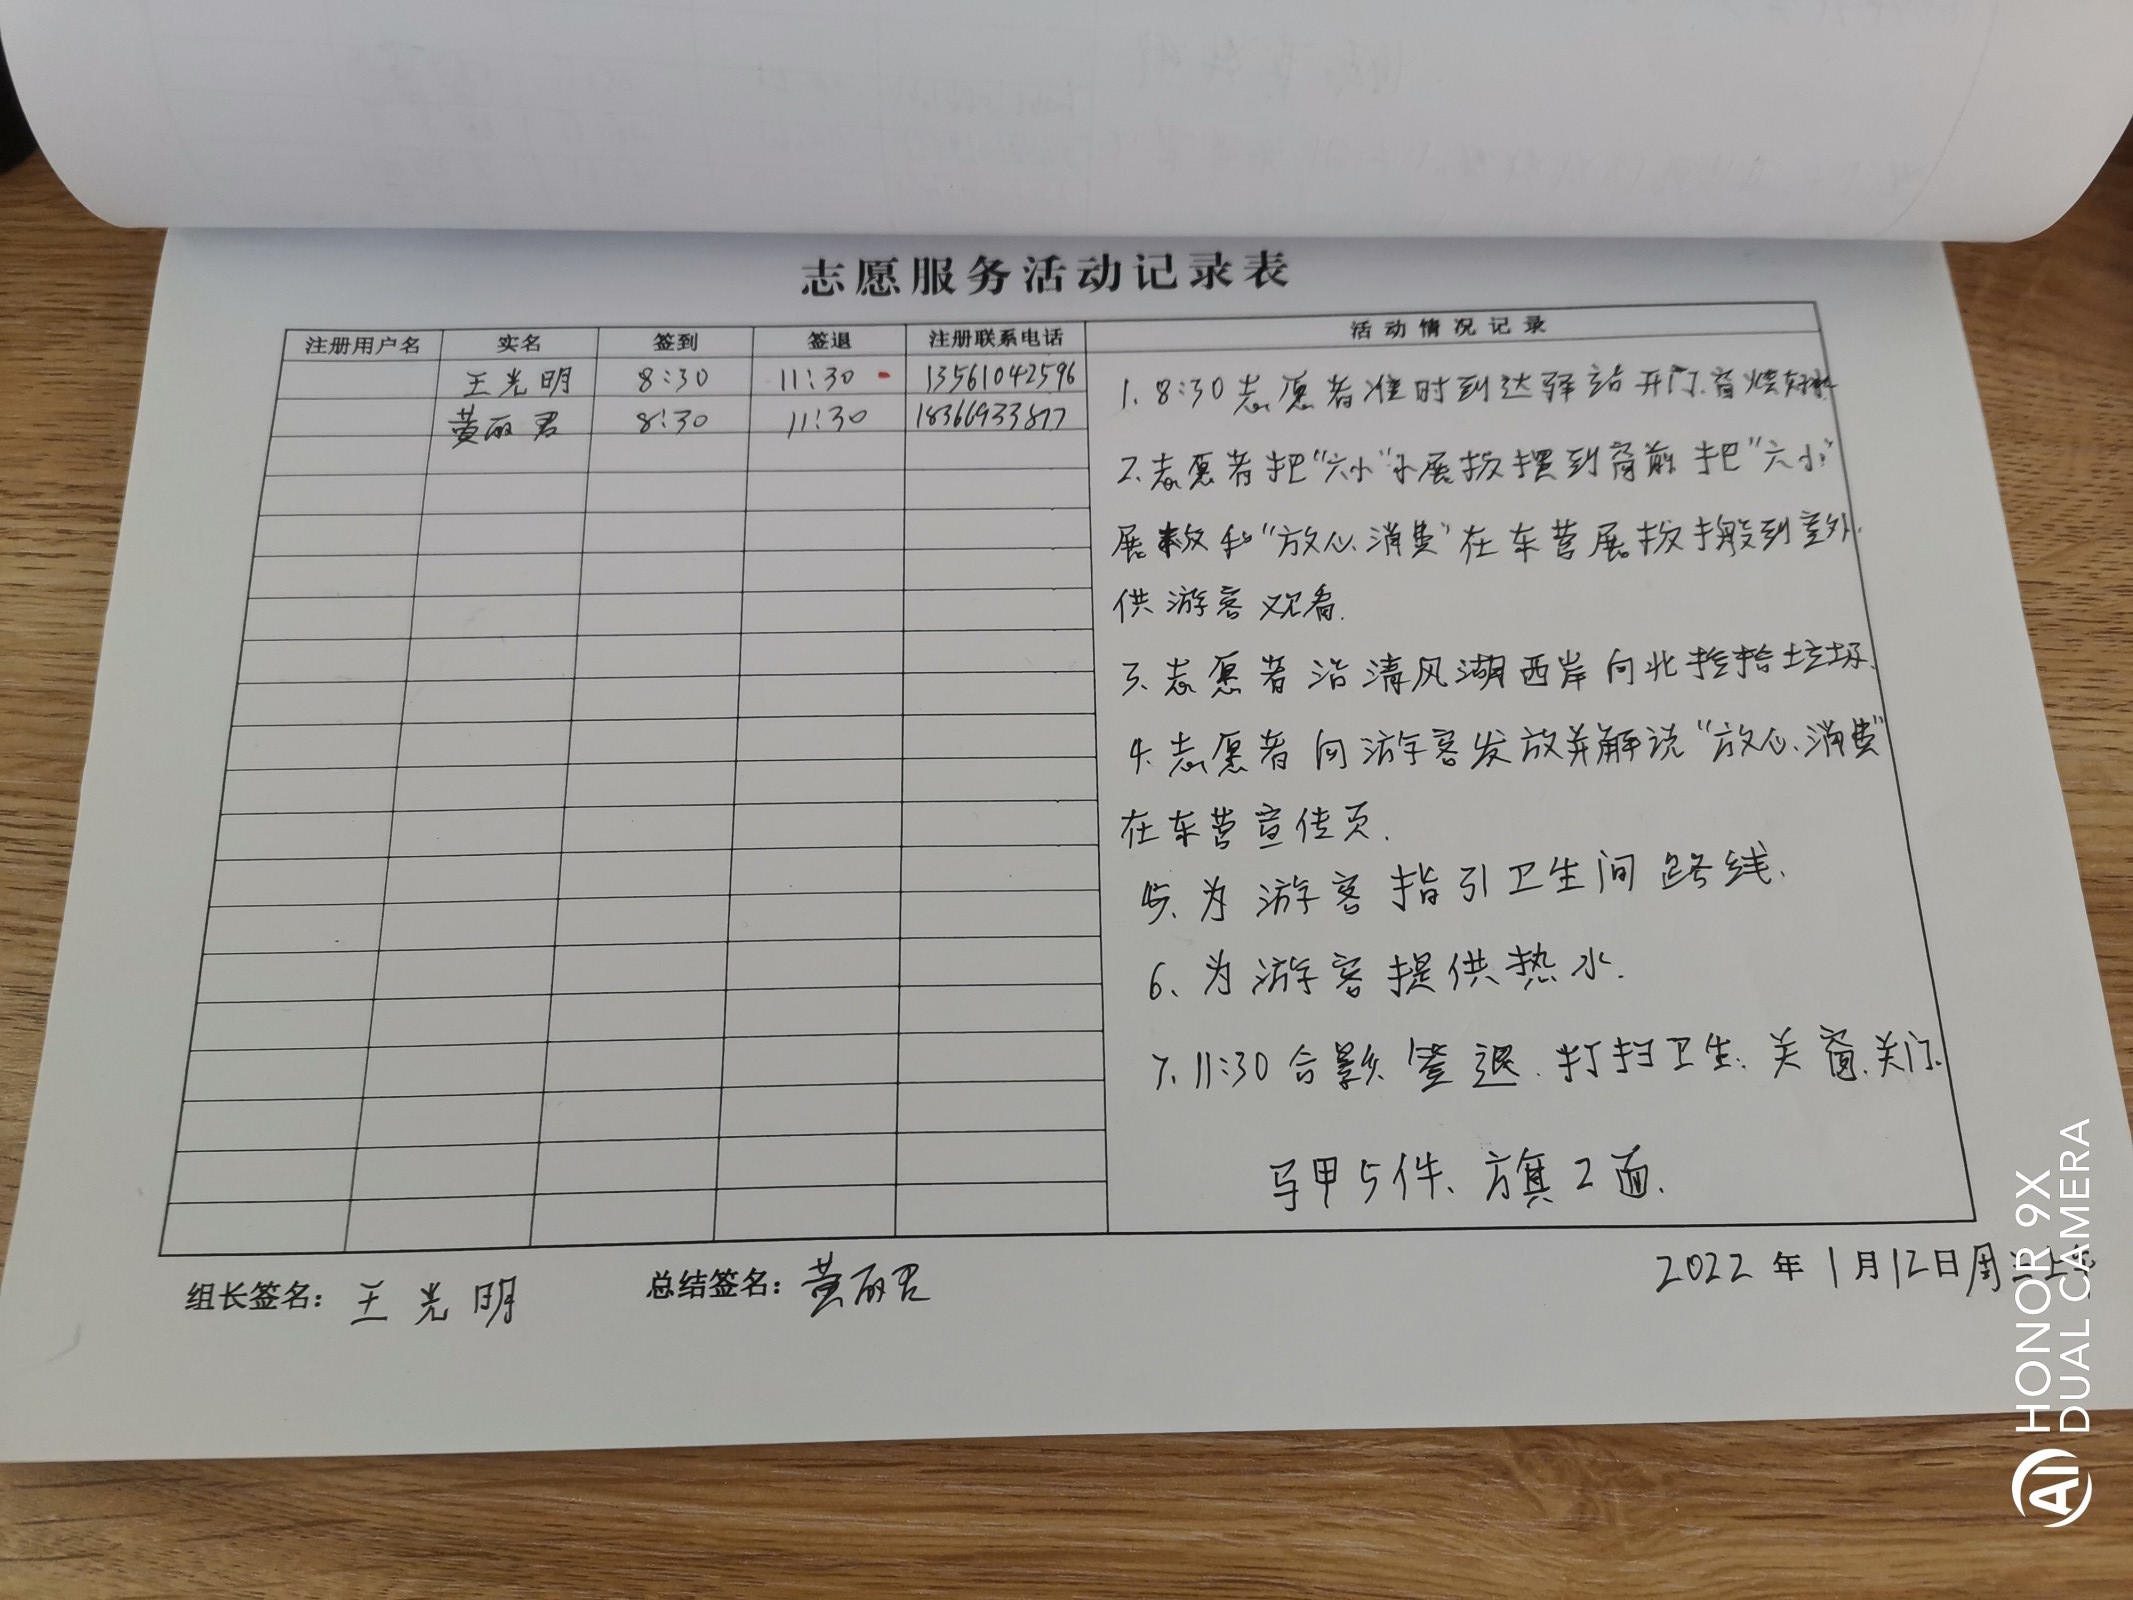 志愿服务活动记录表
注册用户名 实名 签到 签退 注册联系电话 活动情况记录
王光明 8:30 11:30 13561042596
黄丽君 8:30 11:30 18366933877
1、8:30志愿者准时到达驿站开门.窗烧好水.
2、志愿者把“六小”小展板摆到窗前 把“六小”
展板和“放心消费”在东营展板搬到室外.
供游客观看.
3、志愿者沿清风湖西岸向北捡拾垃圾.
4、志愿者向游客发放并解说“放心消费”
在东营宣传页.
5、为游客指引卫生间路线.
6、为游客提供热水.
7、11:30合影 签退.打扫卫生.关窗.关门.
马甲5件、旗2面.
组长签名：王光明 总结签名：黄丽君 2022年1月12日周三上午
HONOR 9X
DUAL CAMERA
AI